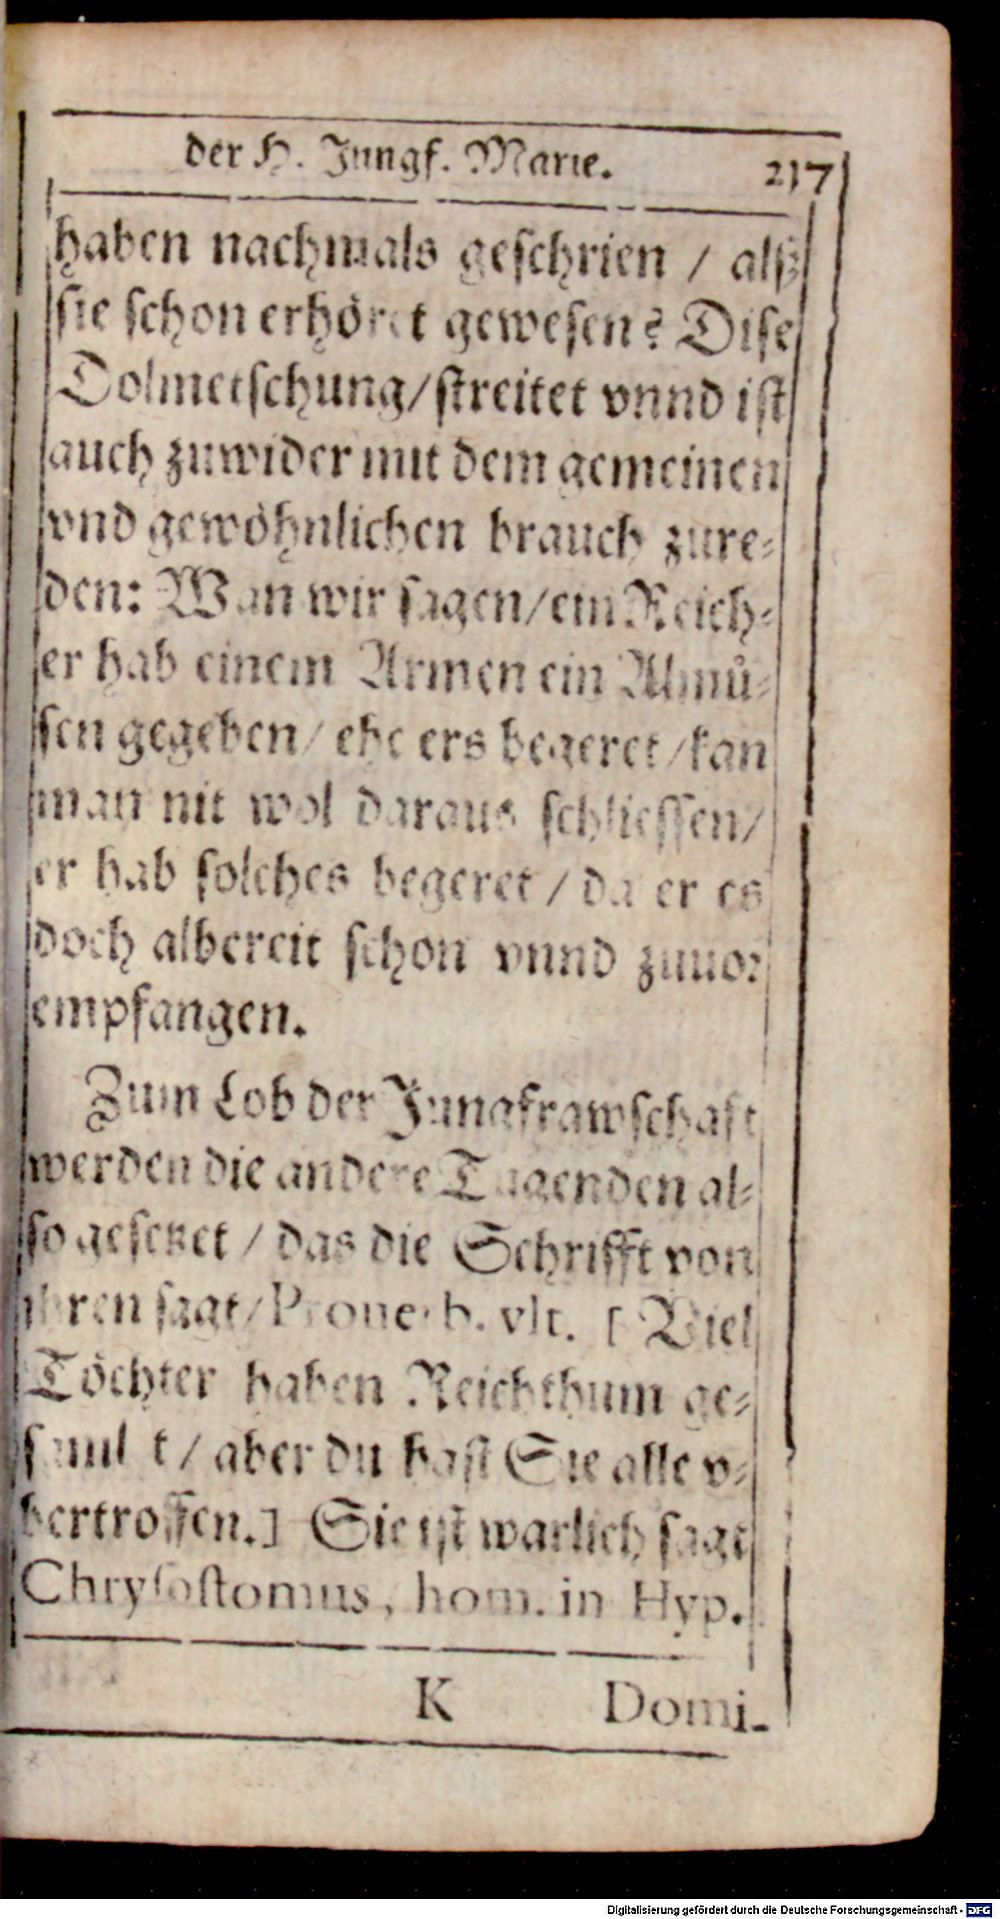 der H. Jungf. Marie. 217
haben nachmals geschrien / alß
sie schon erhöret gewesen? Dise
Dolmetschung/streitet vnnd ist
auch zuwider mit dem gemeinen
vnd gewöhnlichen brauch zure-
den: Wan wir sagen/ein Reich-
er hab einem Armen ein Almů-
sen gegeben/ ehe ers begeret/kan
man nit wol daraus schliessen/
er hab solches begeret / da er es
doch albereit schon vnnd zuuor
empfangen.
Zum Lob der Jungfrawschaft
werden die andere Tugenden al-
so gesetzet / das die Schrifft von
ihren sagt/Prouerb. vlt. [ Viel
Töchter haben Reichthum ge-
samlet/ aber du hast Sie alle v-
bertroffen.] Sie ist warlich sagt
Chrysostomus, hom. in Hyp.
K Domi-
Digitalisierung gefördert durch die Deutsche Forschungsgemeinschaft - DFG